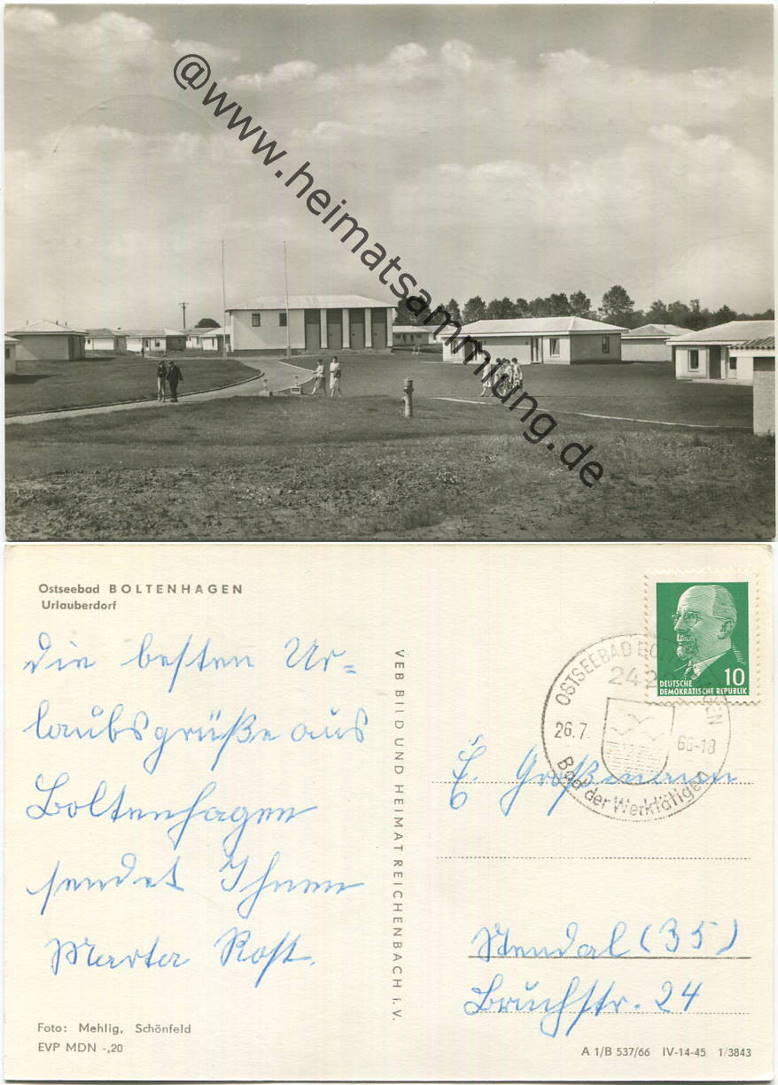 @www.heimatsammlung.de
Ostseebad BOLTENHAGEN
Urlauberdorf
die besten Ur-
laubsgrüße aus
Boltenhagen
sendet Ihnen
Marta Rost.
Foto: Mehlig, Schönfeld
EVP MDN -,20
VEB BILD UND HEIMAT REICHENBACH i. V.
10
DEUTSCHE
DEMOKRATISCHE REPUBLIK
OSTSEEBAD BOLTENHAGEN
242
26.7. 66-18
Bad der Werktätigen
Großmann
Stendal (35)
Bruchstr. 24
A 1/B 537/66 IV-14-45 1/3843